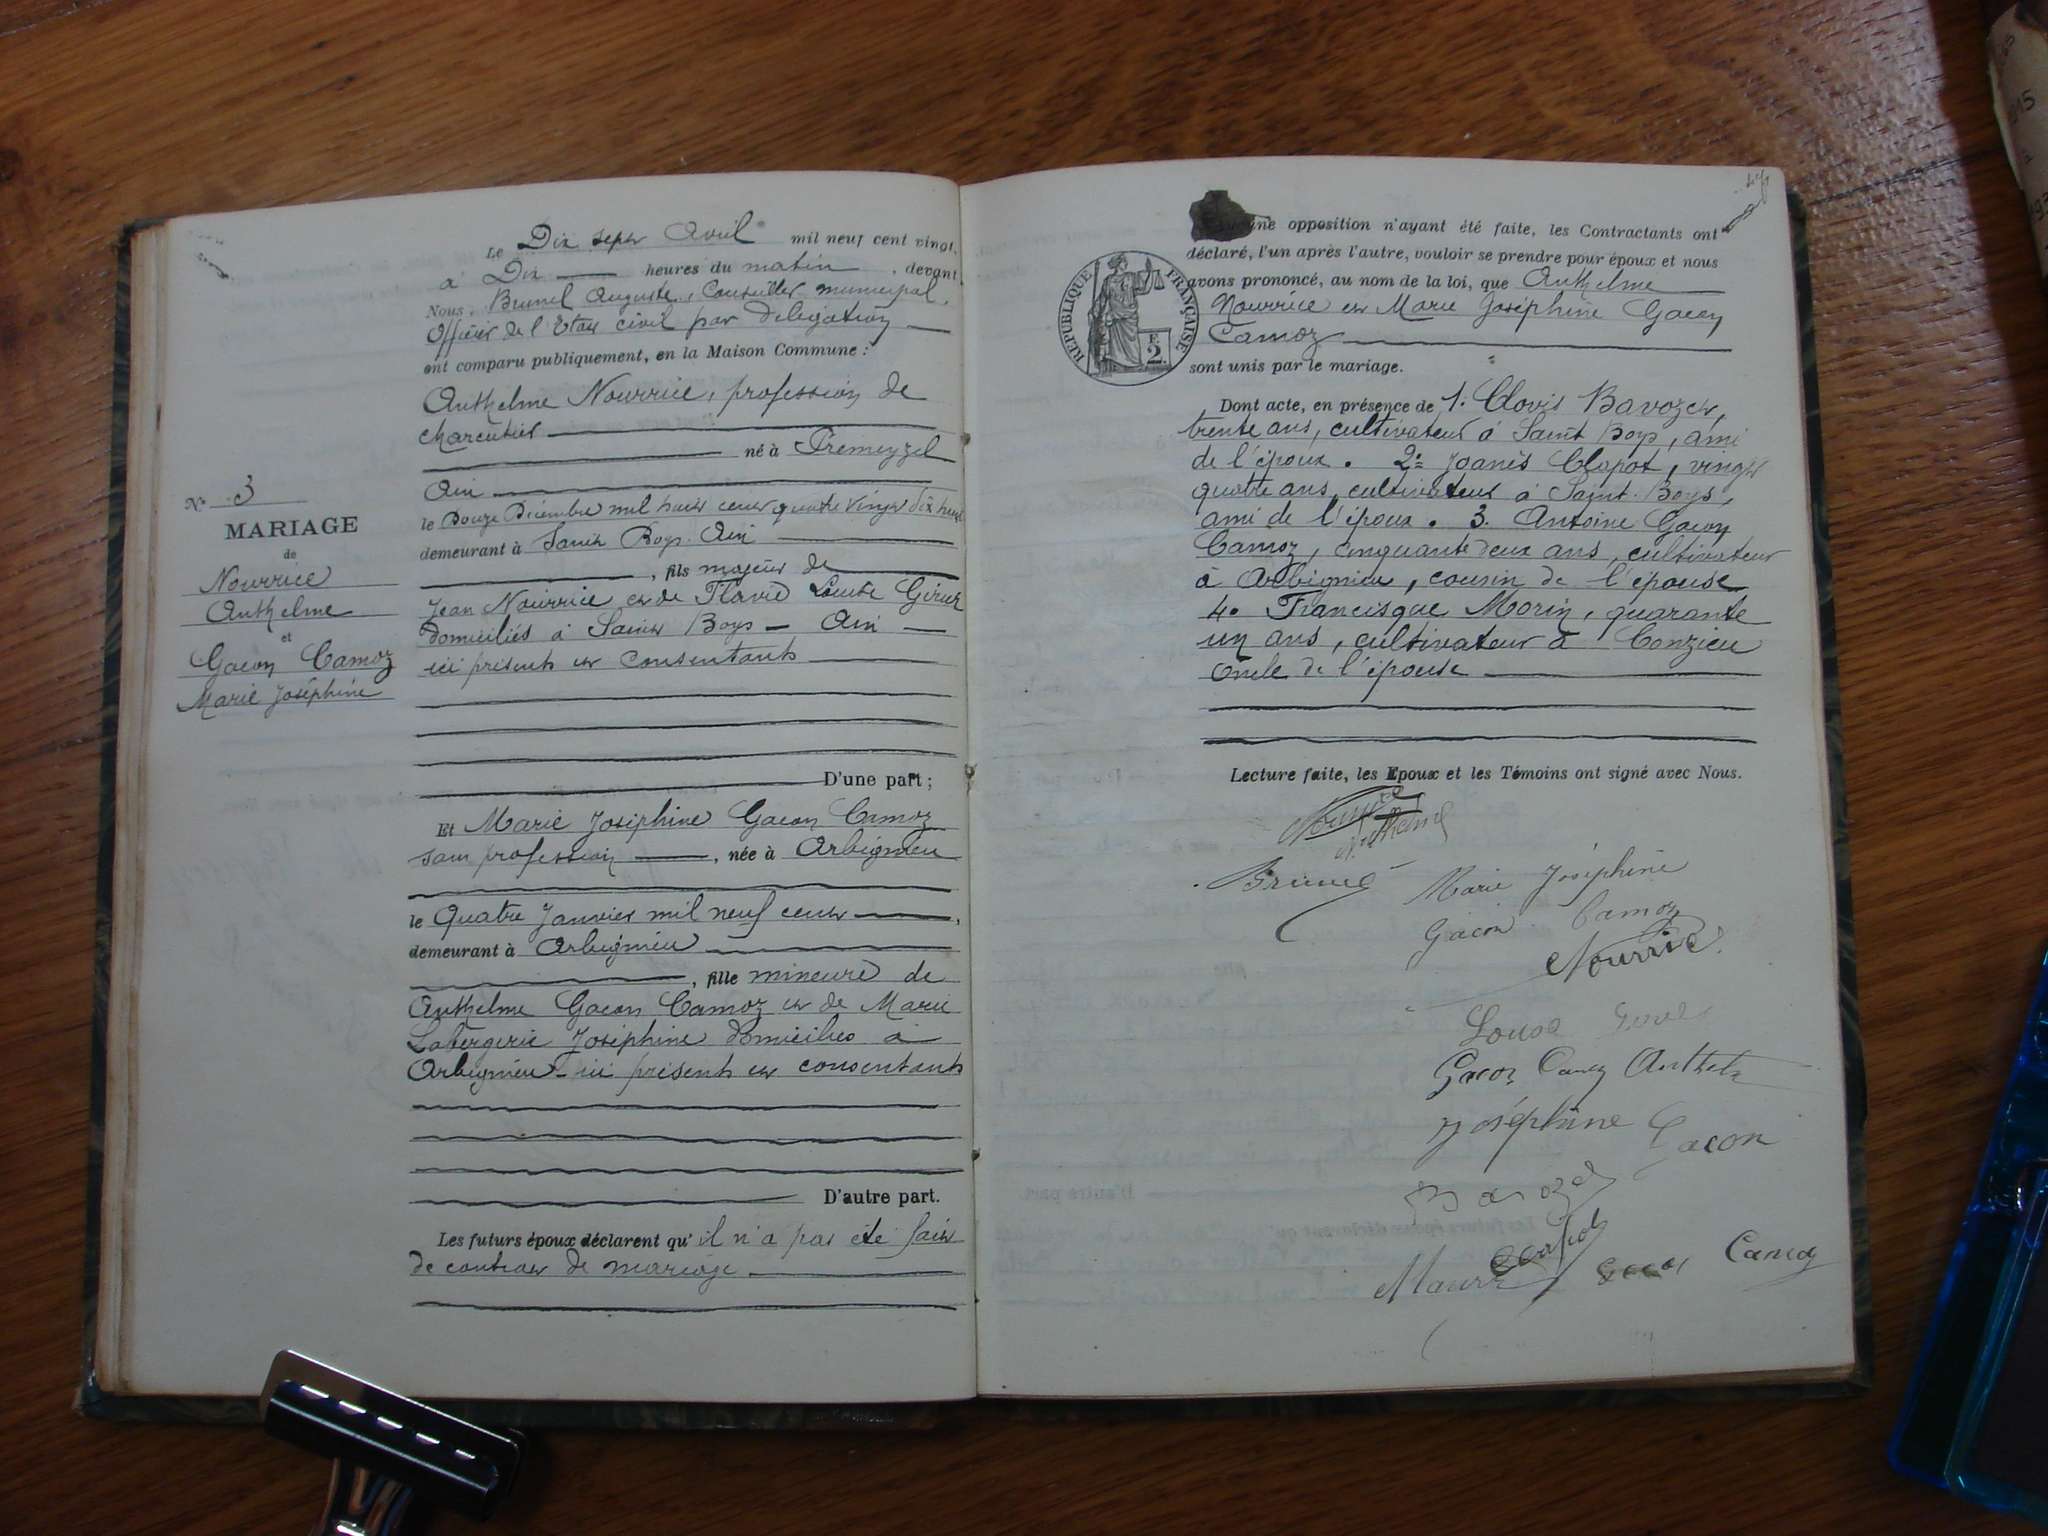 Le Dix sept Avril mil neuf cent vingt,
à Dix heures du matin, devant
Nous, Brunel Auguste, Conseiller municipal,
Officier de l'Etat civil par délégation
ont comparu publiquement, en la Maison Commune :
Anthelme Nourrice, profession de
charcutier
né à Prémeyzel
Ain
le Douze Décembre mil huit cent quatre vingt dix huit
demeurant à Saint Boys. Ain
, fils majeur de
Jean Nourrice et de Flavie Louise Girer
domiciliés à Saint Boys - Ain
ici présents et consentants
N° 3
MARIAGE
de
Nourrice
Anthelme
et
Gacon Camoz
Marie Joséphine
D'une part ;
Et Marie Joséphine Gacon Camoz
sans profession, née à Arbignieu
le Quatre Janvier mil neuf cent,
demeurant à Arbignieu
, fille mineure de
Anthelme Gacon Camoz et de Marie
Labergerie Joséphine domiciliés à
Arbignieu - ici présents et consentants
D'autre part.
Les futurs époux déclarent qu'il n'a pas été fait
de contrat de mariage
Aucune opposition n'ayant été faite, les Contractants ont
déclaré, l'un après l'autre, vouloir se prendre pour époux et nous
avons prononcé, au nom de la loi, que Anthelme
Nourrice et Marie Joséphine Gacon
Camoz
sont unis par le mariage.
RÉPUBLIQUE FRANÇAISE
F.
2.
Dont acte, en présence de 1. Clovis Bavozet,
trente ans, cultivateur à Saint Boys, ami
de l'époux. 2. Joanès Clapot, vingt
quatre ans, cultivateur à Saint-Boys,
ami de l'époux. 3. Antoine Gacon
Camoz, cinquante deux ans, cultivateur
à Arbignieu, cousin de l'épouse
4. Francisque Morin, quarante
un ans, cultivateur à Conzieu
oncle de l'épouse
Lecture faite, les Epoux et les Témoins ont signé avec Nous.
Nourrice
Anthelme
Brunel
Marie Joséphine
Gacon Camoz
Nourrice
Louise
Gacon Camoz Anthelme
Joséphine Gacon
Bavozet
Clapot
Gacon Camoz